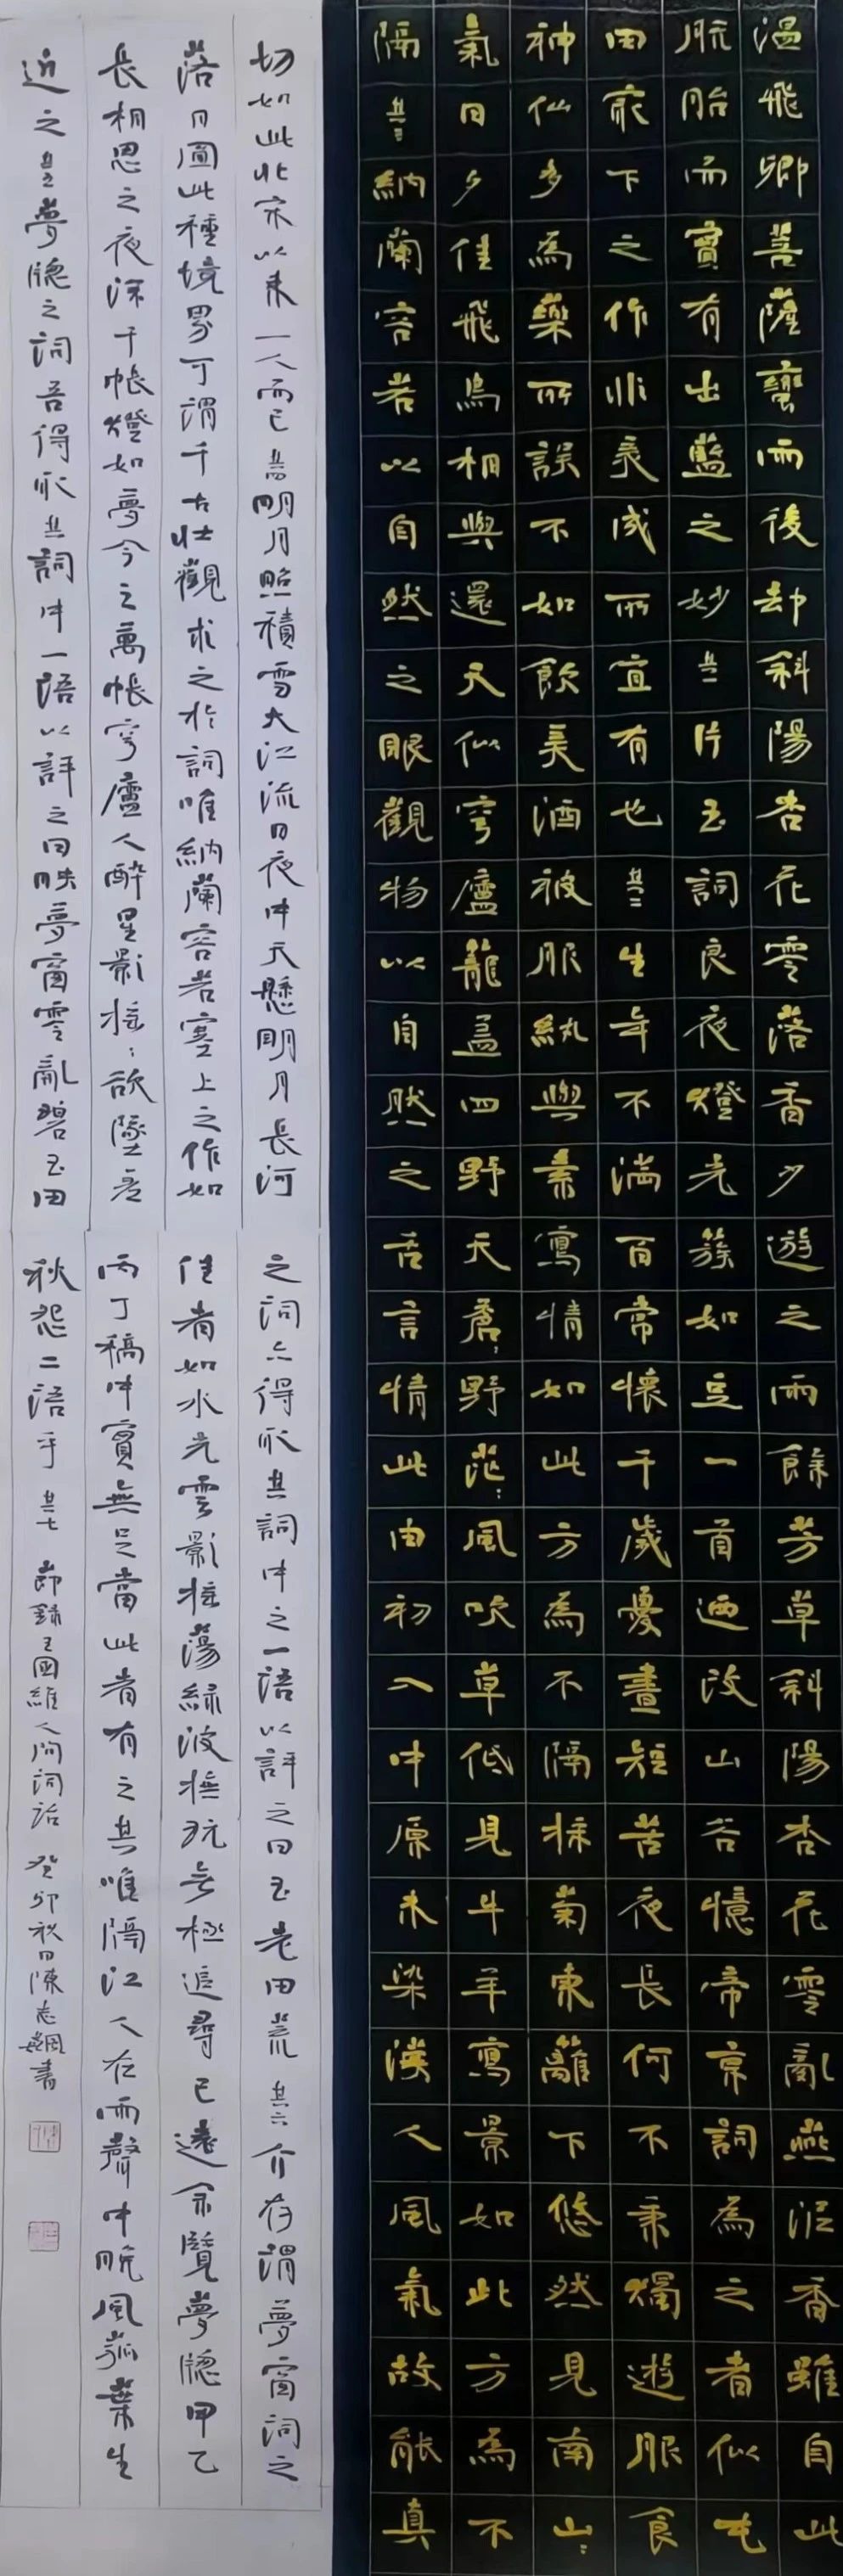 溫飛卿菩薩蠻雨後却斜陽杏花零落香少遊之雨餘芳草斜陽杏花零亂燕泥香雖自此
脫胎而實有出藍之妙其一片玉詞良夜燈光簇如豆一首迺改山谷憶帝京詞為之者似屯
田最下之作非美成所宜有也其二生年不滿百常懷千歲憂晝短苦夜長何不秉燭遊服食
神仙多為藥所誤不如飲美酒被服紈與素寫情如此方為不隔採菊東籬下悠然見南山〻
氣日夕佳飛鳥相與還天似穹廬籠蓋四野天蒼〻野茫〻風吹草低見牛羊寫景如此方為不
隔其三納蘭容若以自然之眼觀物以自然之舌言情此由初入中原未染漢人風氣故能真
切如此北宋以來一人而已其四明月照積雪大江流日夜中天懸明月長河
落日圓此種境界可謂千古壯觀求之於詞唯納蘭容若塞上之作如
長相思之夜深千帳燈如夢令之萬帳穹廬人醉星影搖〻欲墜差
近之其五夢窗之詞吾得取其詞中一語以評之曰映夢窗零亂碧玉田
之詞亦得取其詞中之一語以評之曰玉老田荒其六介存謂夢窗詞之
佳者如水光雲影搖蕩綠波撫玩無極追尋已遠余覽夢窗甲乙
丙丁稿中實無足當此者有之其唯隔江人在雨聲中晚風菰葉生
秋怨二語乎其七 節錄王國維人間詞話 癸卯秋日陳志書